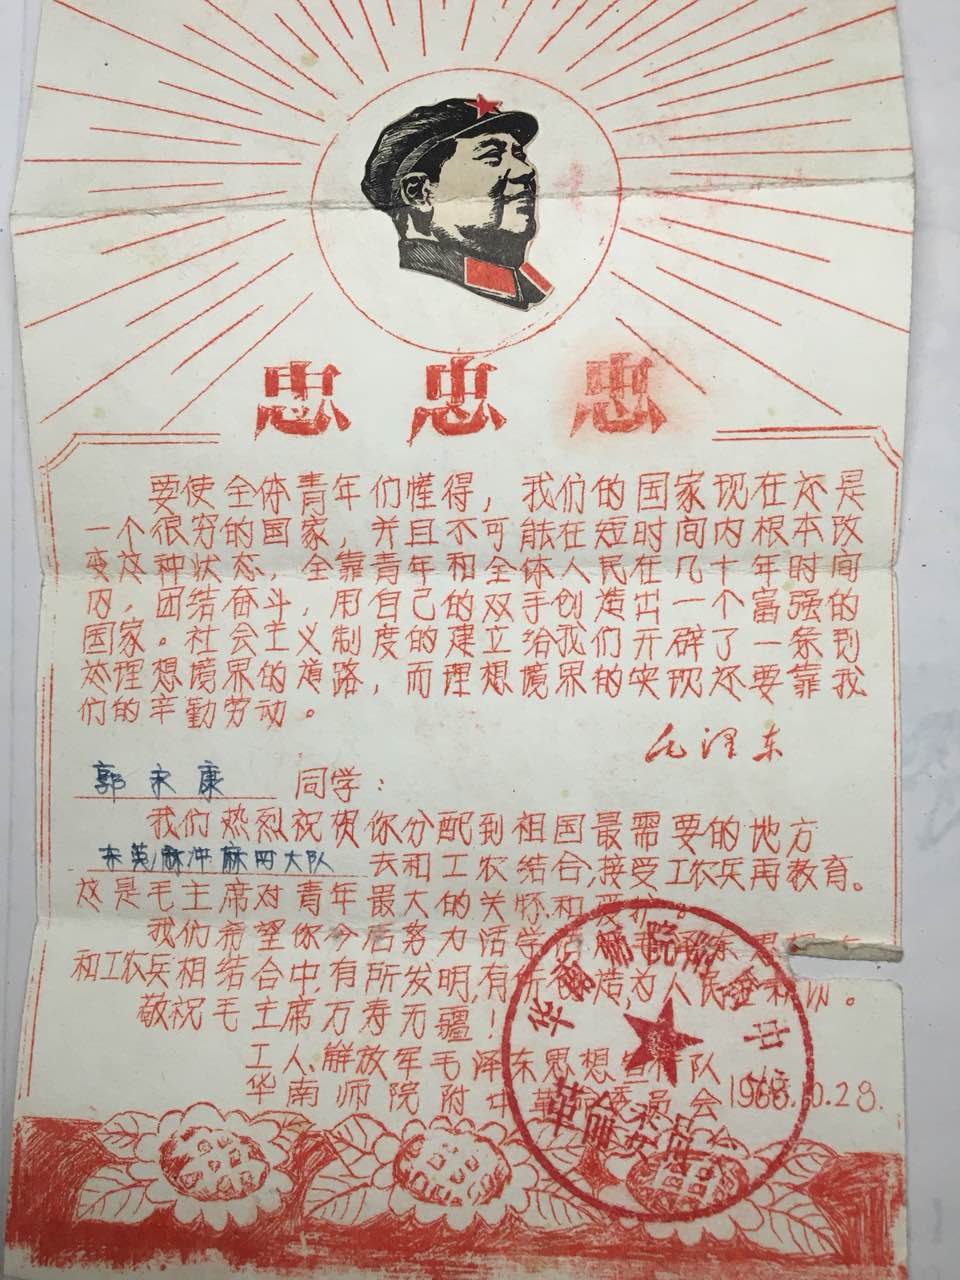 忠忠忠
要使全体青年们懂得，我们的国家现在还是
一个很穷的国家，并且不可能在短时间内根本改
变这种状态，全靠青年和全体人民在几十年时间
内，团结奋斗，用自己的双手创造出一个富强的
国家。社会主义制度的建立给我们开辟了一条到
达理想境界的道路，而理想境界的实现还要靠我
们的辛勤劳动。
毛泽东
郭 康 同学：
我们热烈祝贺你分配到祖国最需要的地方
东莞 麻四大队 去和工农结合，接受工农兵再教育。
这是毛主席对青年最大的关怀和爱护。
我们希望你今后努力活学活用毛泽东思想
和工农兵相结合中，有所发明，有所创造，为人民
敬祝毛主席万寿无疆！
工人、解放军毛泽东思想宣传队
华南师院附中革命委员会 1968.10.28.
华南师院附属中
革命委员会